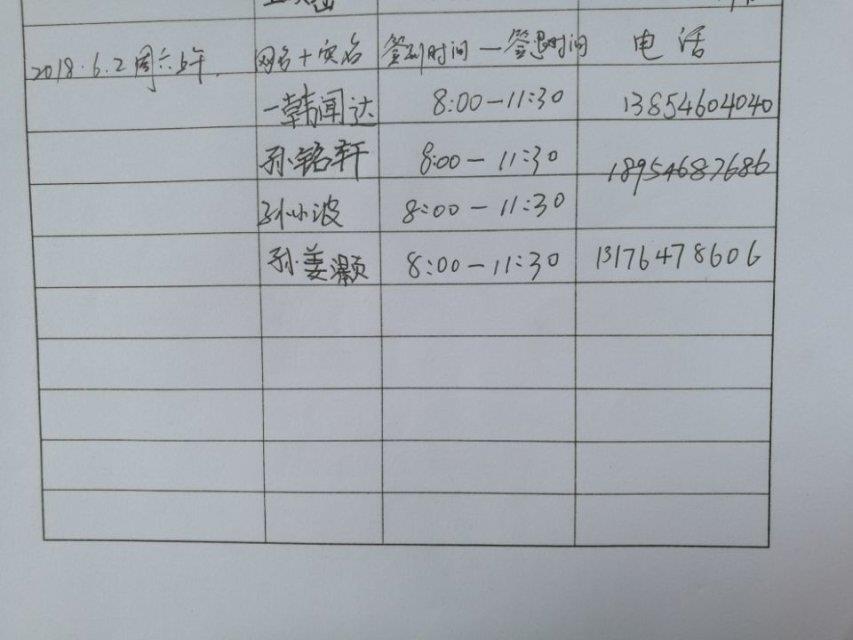 2018.6.2 周六上午. 网名+实名 签到时间—签退时间 电话
韩闻达 8:00-11:30 13854604040
孙铭轩 8:00-11:30 18954687686
孙小波 8:00-11:30
孙姜灏 8:00-11:30 13176478606